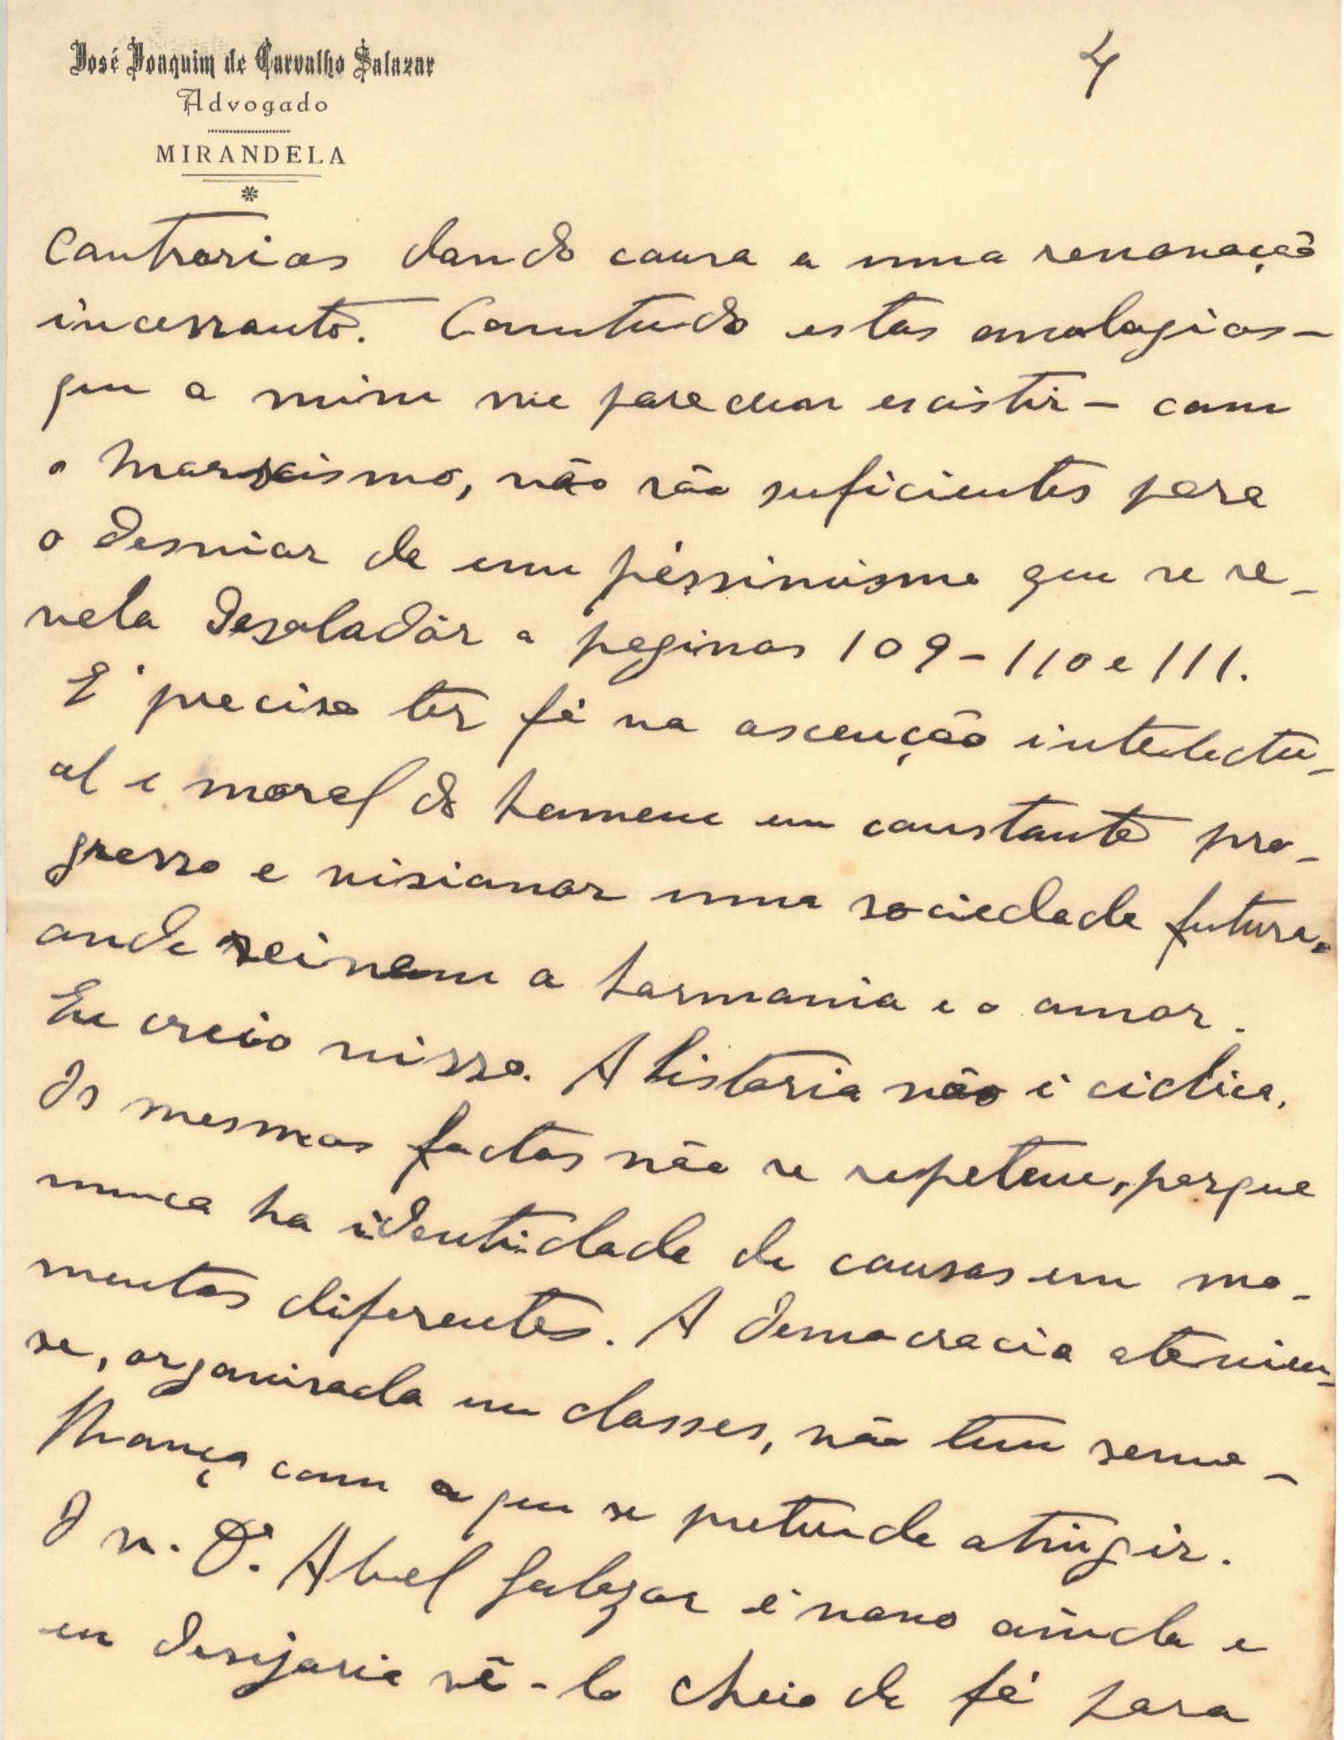 José Joaquim de Carvalho Salazar
Advogado
MIRANDELA
4
contrarios dando causa a uma renovação
incessante. Comtudo estas analogias -
que a mim me parecem existir - com
o marxismo, não são suficientes para
o desviar de um péssimismo que se re-
vela desoladôr a paginas 109-110 e 111.
E' preciso ter fé na ascenção intelectu-
al e moral do homem em constante pro-
gresso e visionar uma sociedade futura,
onde reinem a harmonia e o amor.
Eu creio nisso. A historia não é ciclica.
Os mesmos factos não se repetem, porque
nunca ha identidade de causas em mo-
mentos diferentes. A democracia atenien-
se, organisada em classes, não tem seme-
lhança com a que se pretende atingir.
O sr. Dr. Abel Salazar é novo ainda e
eu desejaria vê-lo cheio de fé para